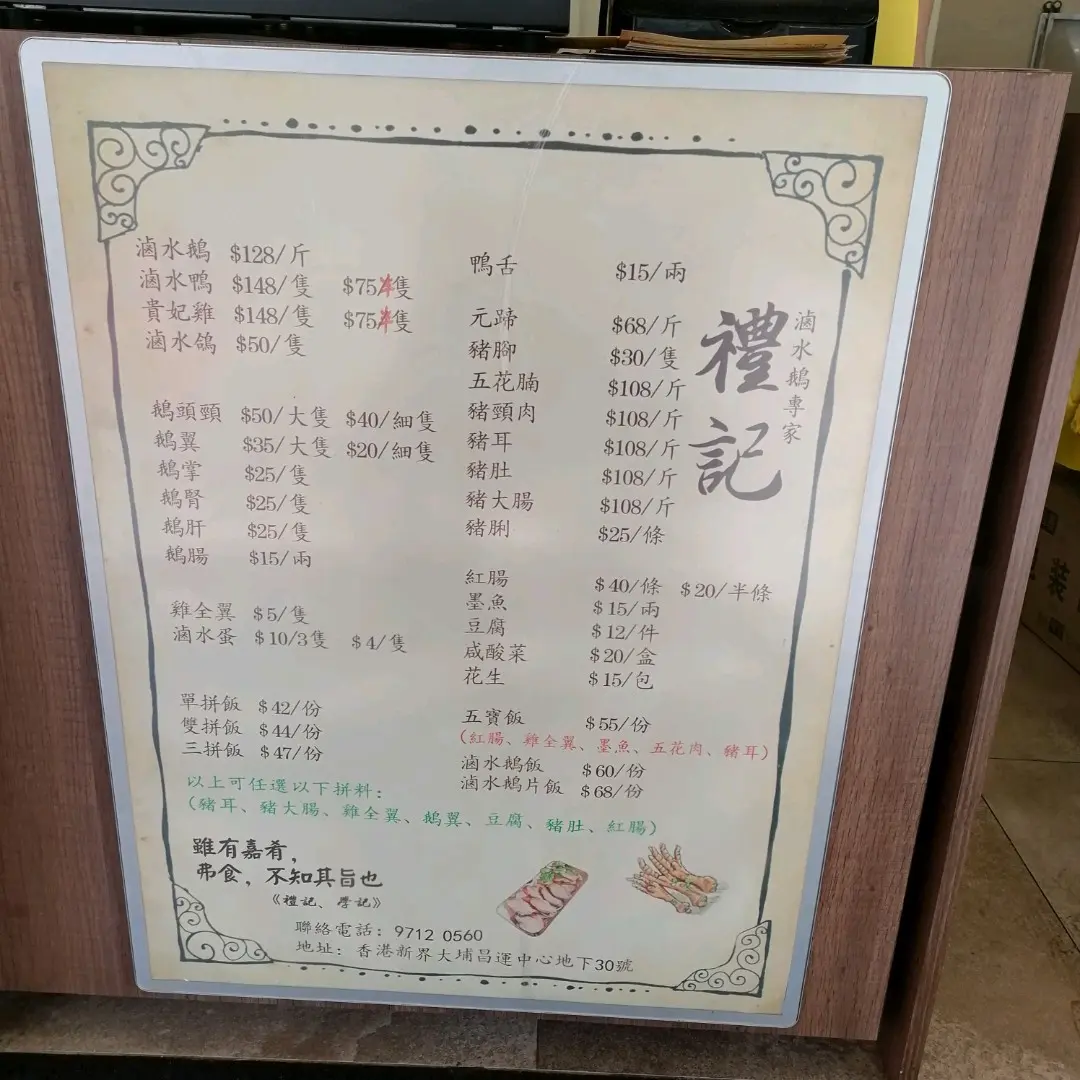 滷水鵝 $128/斤
滷水鴨 $148/隻 $75半隻
貴妃雞 $148/隻 $75半隻
滷水鴿 $50/隻
鵝頭頸 $50/大隻 $40/細隻
鵝翼 $35/大隻 $20/細隻
鵝掌 $25/隻
鵝腎 $25/隻
鵝肝 $25/隻
鵝腸 $15/兩
雞全翼 $5/隻
滷水蛋 $10/3隻 $4/隻
單拼飯 $42/份
雙拼飯 $44/份
三拼飯 $47/份
以上可任選以下拼料：
（豬耳、豬大腸、雞全翼、鵝翼、豆腐、豬肚、紅腸）
鴨舌 $15/兩
元蹄 $68/斤
豬腳 $30/隻
五花腩 $108/斤
豬頸肉 $108/斤
豬耳 $108/斤
豬肚 $108/斤
豬大腸 $108/斤
豬脷 $25/條
紅腸 $40/條 $20/半條
墨魚 $15/兩
豆腐 $12/件
咸酸菜 $20/盒
花生 $15/包
五寶飯 $55/份
（紅腸、雞全翼、墨魚、五花肉、豬耳）
滷水鵝飯 $60/份
滷水鵝片飯 $68/份
滷水鵝專家
禮記
雖有嘉肴，
弗食，不知其旨也
《禮記、學記》
聯絡電話：9712 0560
地址：香港新界大埔昌運中心地下30號
裝